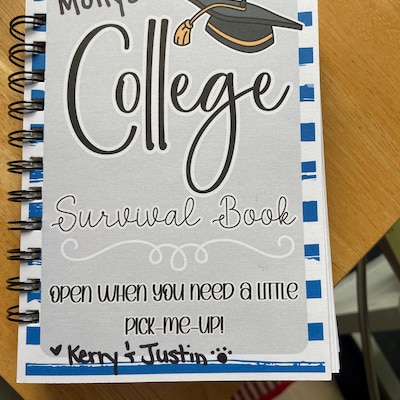 Molly's
College
Survival Book
OPEN WHEN YOU NEED a LITTLE
PICK-ME-UP!
Kerry & Justin